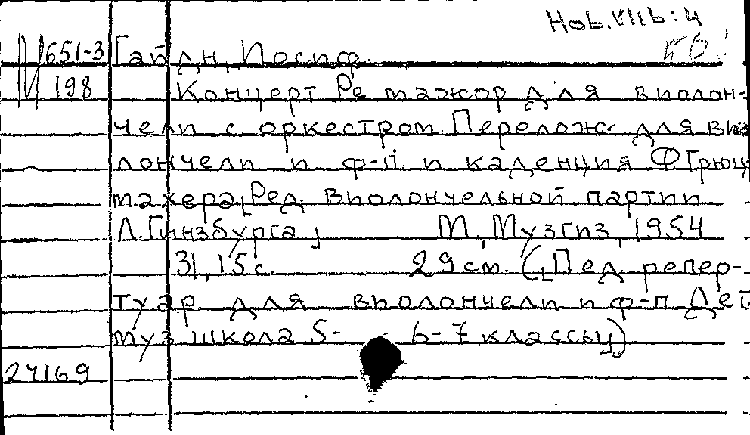 Hob. VIIb: 4
И 651-3 Гайдн, Иосиф.
198 Концерт Ре мажор для виолон-
чели с оркестром Перелож. для вио
лончели и ф-п. и каденция Ф Грюц
махера, Ред. виолончельной партии
Л. Гинзбурга, М, Музгиз, 1954
31, 15 с. 29 см. (Пед. репер-
туар для виолончели и ф-п Дет
муз школа 5- - 6-7 классы)
27169